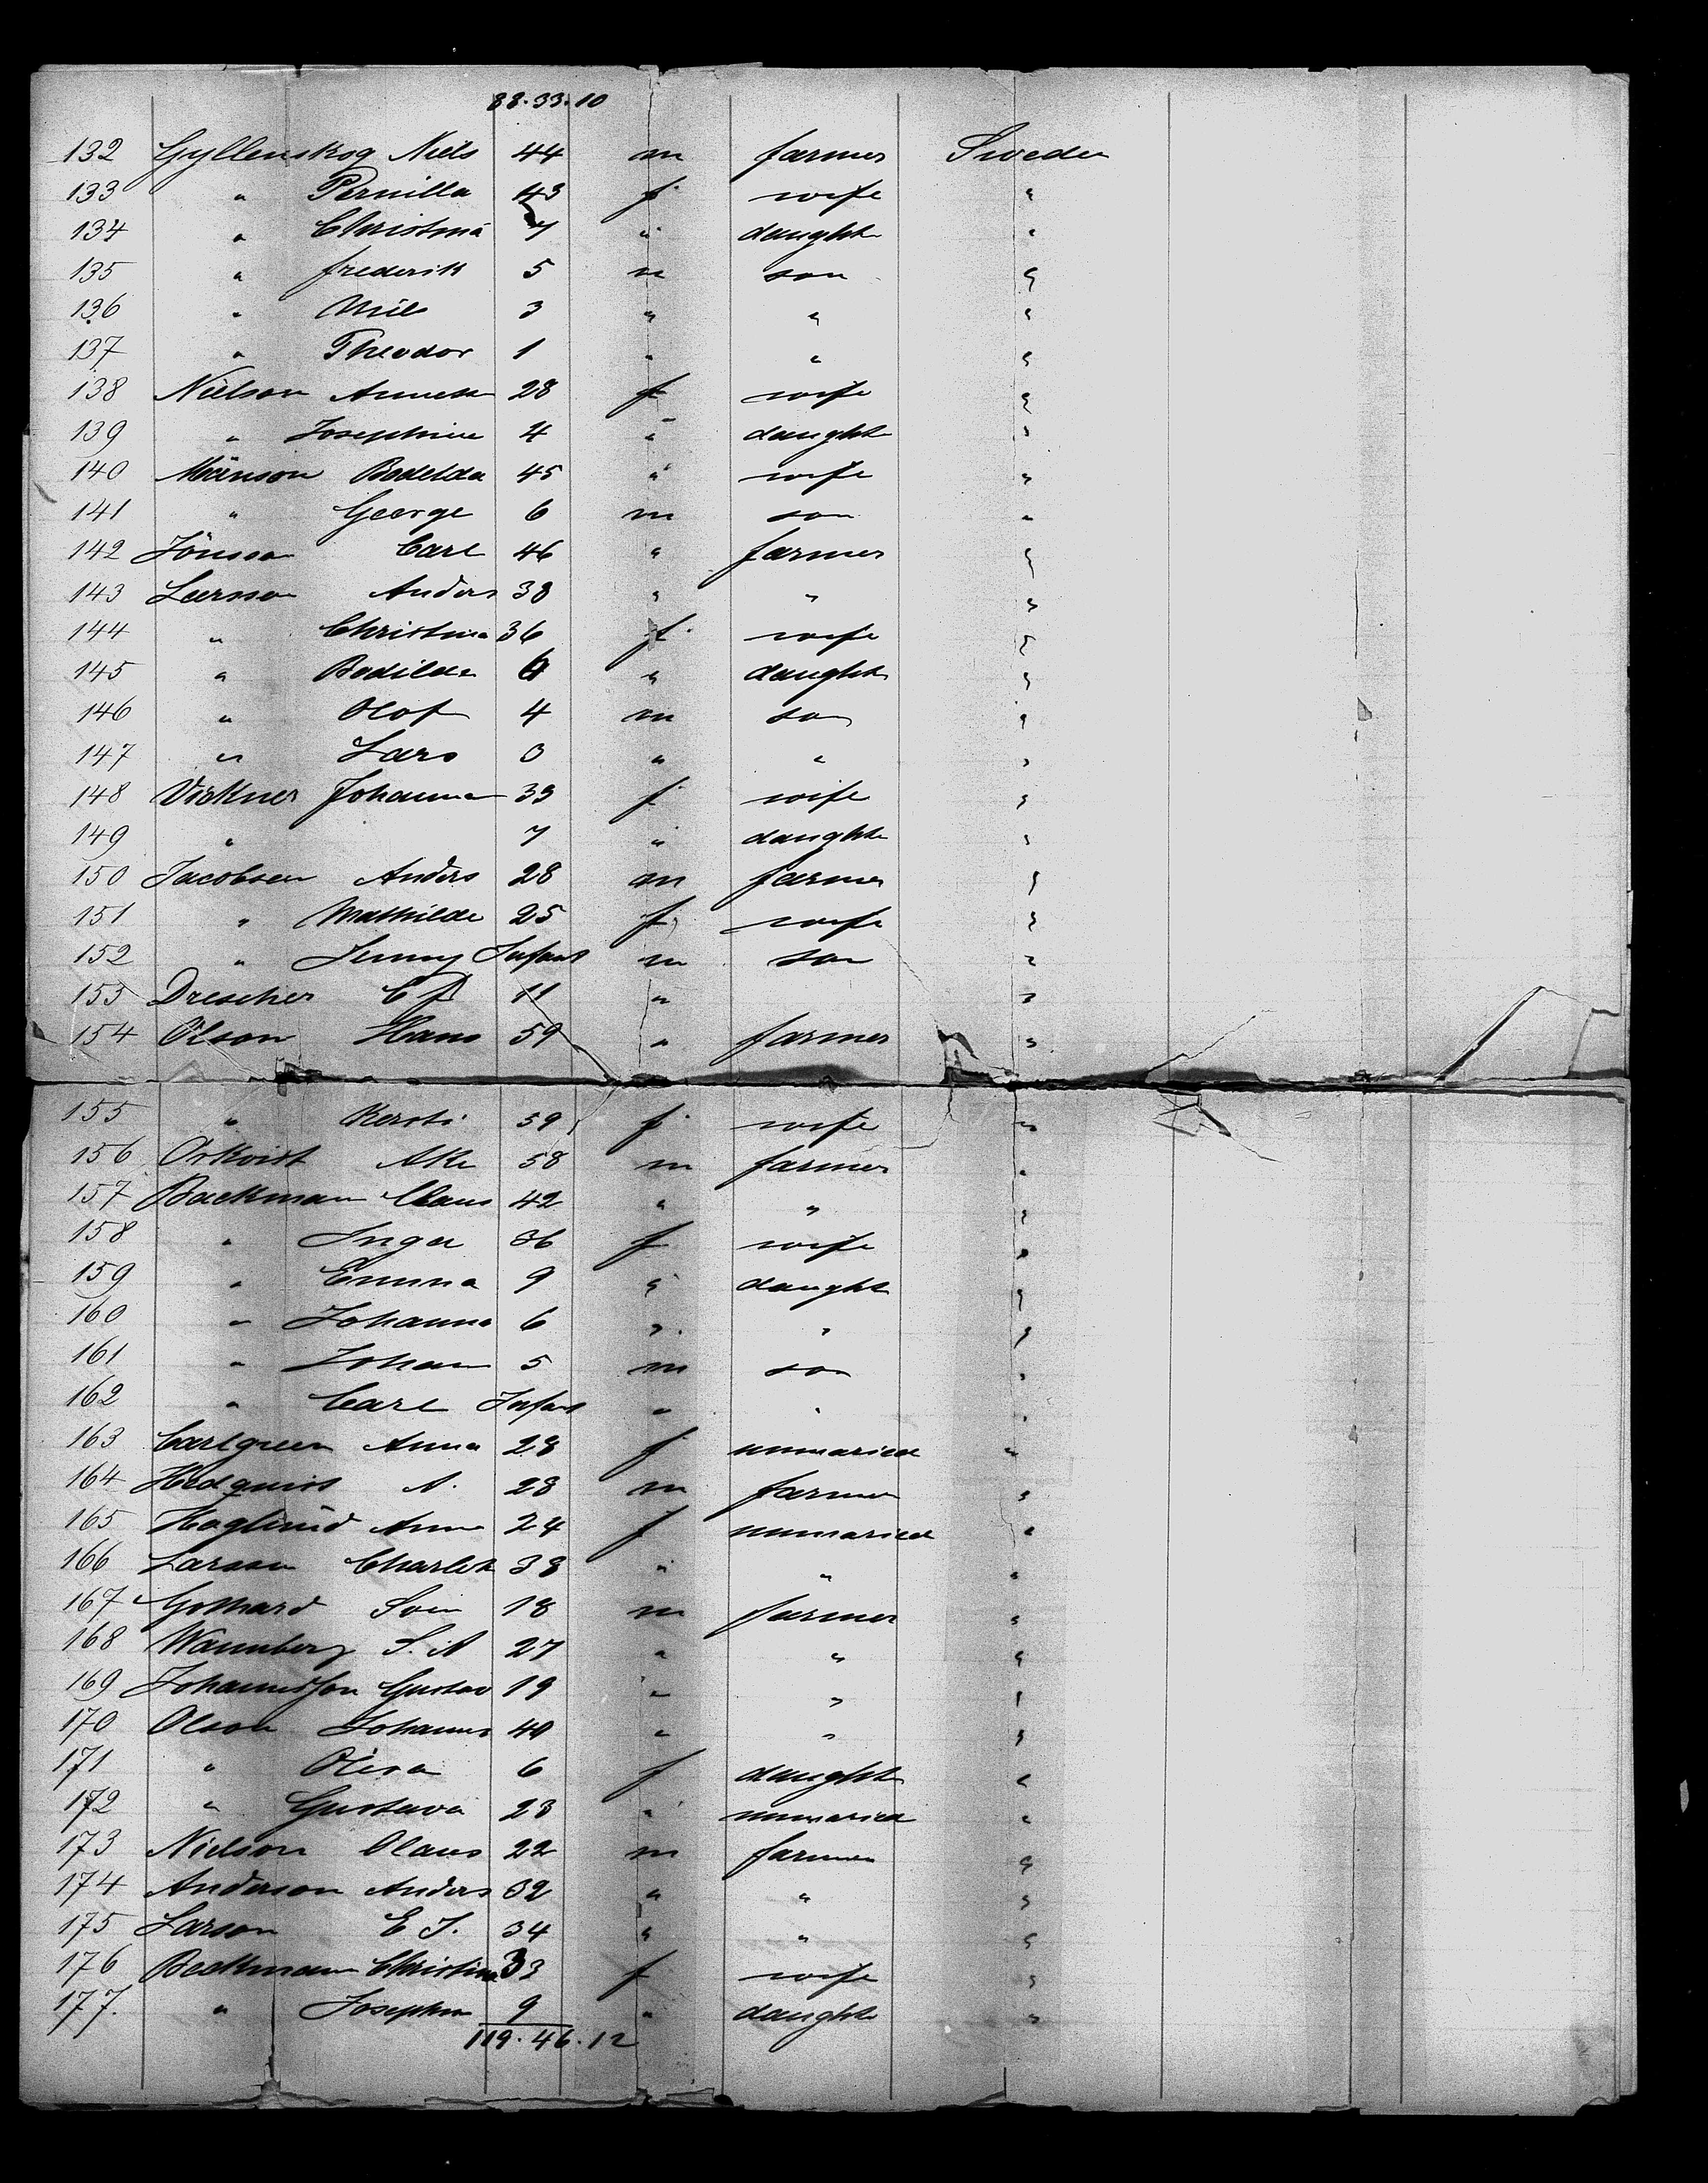 88.33.10
132 Gyllenskog Niels 44 m farmer Sweden
133 " Pernilla 43 f wife "
134 " Christina 7 " daught "
135 " frederik 5 m son "
136 " Nils 3 " " "
137 " Theodor 1 " " "
138 Nielson Annette 28 f wife "
139 " Josephine 4 " daught "
140 Mänson Bodelda 45 " wife "
141 " George 6 m son "
142 Jönsson Carl 46 " farmer "
143 Larsson Anders 38 " " "
144 " Christina 36 f wife "
145 " Bodilda 6 " daught "
146 " Olof 4 m son "
147 " Lars 0 " " "
148 Vickner Johanna 33 f wife "
149 " 7 " daught "
150 Jacobsen Anders 28 m farmer "
151 " Mathilde 25 f wife "
152 " Jenny Infant m son "
153 Drescher C 11 " "
154 Olson Hans 59 " farmer "
155 " Kersti 59 f wife "
156 Orkvist Ake 58 m farmer "
157 Backman Claus 42 " " "
158 " Inga 36 f wife "
159 " Emma 9 " daught "
160 " Johanna 6 " " "
161 " Johan 5 m son "
162 " Carl Infant " " "
163 Carlgreen Anna 28 f unmaried "
164 Hedquist A. 28 m farmer "
165 Hoglund Anna 24 f unmaried "
166 Larson Charlott 38 " " "
167 Gothard Sven 18 m farmer "
168 Wannberg S. A 27 " " "
169 Johannesson Gustav 19 " " "
170 Olson Johannes 40 " " "
171 " Olivia 6 f daught "
172 " Gustava 23 " unmaried "
173 Nielson Olaus 22 m farmer "
174 Anderson Anders 32 " " "
175 Larson E J. 34 " " "
176 Beckman Christina 33 f wife "
177. " Josephin 9 " daught "
119.46.12